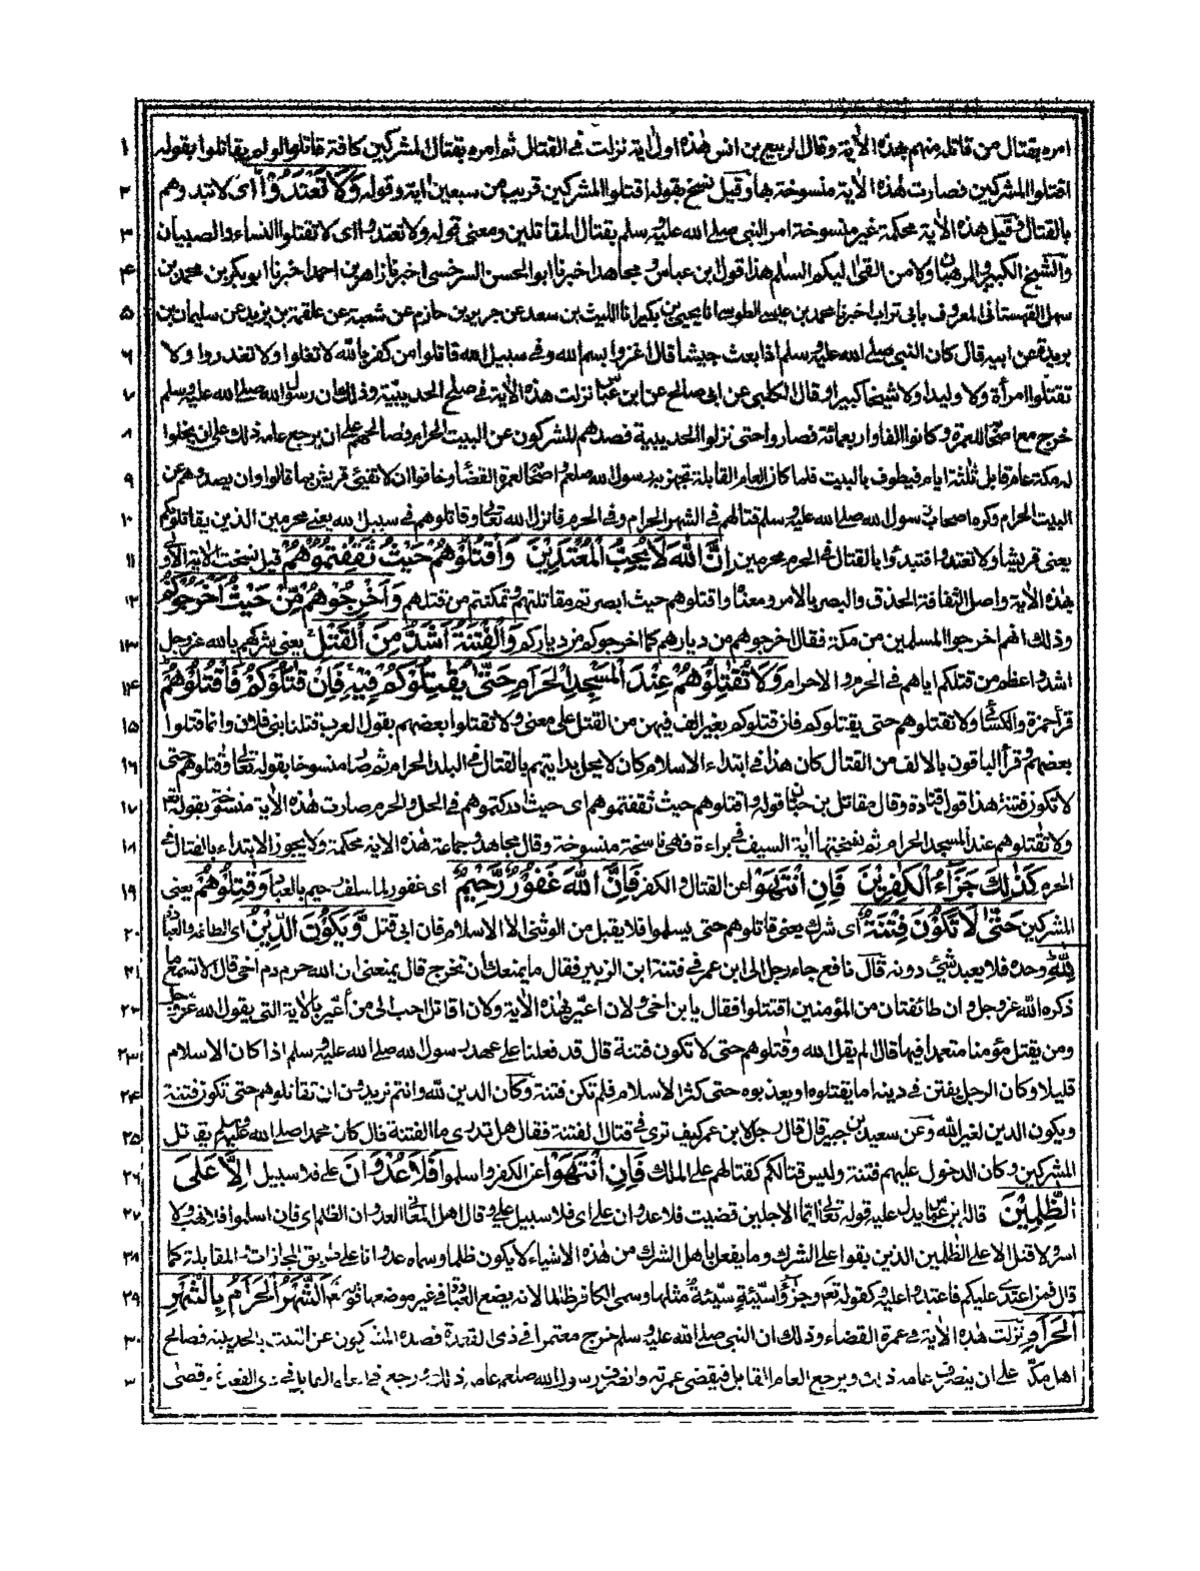 امره بقتال من قاتله منهم بهذه الاٰية وقال الربيع بن انس هٰذه اول اٰية نزلت فى القتال ثم امره بقتال المشركين كافة قاتلوا اولم يقاتلوا بقوله ١
اقتلوا المشركين فصارت هٰذه الاٰية منسوخة بها وقيل نسخ بقوله اقتلوا المشركين قريب من سبعين اٰية وقوله وَلَا تَعْتَدُوْا اى لا تبدوهم ٢
بالقتال وقيل هذه الاٰية محكمة غير منسوخة امر النبى صلے الله عليه وسلم بقتال المقاتلين ومعنى قوله ولا تعتدوا اى لا تقتلوا النساء والصبيان ٣
والشيخ الكبير والرهبان ولا من القى اليكم السلم هذا قول ابن عباس ومجاهد اخبرنا ابو الحسن السرخسى اخبرنا زاهر بن احمد اخبرنا ابو بكر بن محمد بن ٤
سهل القهستانى المعروف بابى تراب اخبرنا محمد بن عيسے الطوسے انا يحيى بن بكير انا الليث بن سعد عن جرير بن حازم عن شعبة عن علقمة بن يزيد عن سليمان بن ٥
بريدة عن ابيه قال كان النبى صلے الله عليه وسلم اذا بعث جيشا قال اغزوا بسم الله وفى سبيل الله قاتلوا من كفر بالله لا تغلوا ولا تغدروا ولا ٦
تقتلوا امرأة ولا وليدا ولا شيخا كبيرا وقال الكلبى عن ابى صالح عن ابن عباس نزلت هذه الاٰية فى صلح الحديبية وذلك ان رسول الله صلے الله عليه وسلم ٧
خرج مع اصحابه للعمرة وكانوا الفا واربعمائة فصاروا حتى نزلوا الحديبية فصدهم المشركون عن البيت الحرام وصالحهم على ان يرجع عامه ذلك على ان يخلوا ٨
له مكة عام قابل ثلثة ايام فيطوف بالبيت فلما كان العام القابلة تجهز رسول الله صلعم واصحابه لعمرة القضاء وخافوا ان لا تفئ قريش بما قالوا وان يصدوهم عن ٩
البيت الحرام وكره اصحاب رسول الله صلے الله عليه وسلم قتالهم فى الشهر الحرام وفى الحرم فانزل الله تعالى وقاتلوهم فى سبيل الله يعنى محرمين الذين يقاتلونكم ١٠
يعنى قريشا ولا تعتدوا فتبدءوا بالقتال فى الحرم محرمين اِنَّ اللّٰهَ لَا يُحِبُّ الْمُعْتَدِيْنَ وَاقْتُلُوْهُمْ حَيْثُ ثَقِفْتُمُوْهُمْ قيل نسخت الاٰية الاولى ١١
بهٰذه الاٰية واصل الثقافة الحذق والبصر بالامر ومعناه واقتلوهم حيث ابصرتم مقاتلتهم وتمكنتم من قتلهم وَاَخْرِجُوْهُمْ مِّنْ حَيْثُ اَخْرَجُوْكُمْ ١٢
وذلك انهم اخرجوا المسلمين من مكة فقال اخرجوهم من ديارهم كما اخرجوكم من دياركم وَالْفِتْنَةُ اَشَدُّ مِنَ الْقَتْلِ يعنى شركهم بالله عز وجل ١٣
اشد واعظم من قتلكم اياهم فى الحرم والاحرام وَلَا تُقٰتِلُوْهُمْ عِنْدَ الْمَسْجِدِ الْحَرَامِ حَتّٰى يُقٰتِلُوْكُمْ فِيْهِ فَاِنْ قٰتَلُوْكُمْ فَاقْتُلُوْهُمْ ١٤
قرأ حمزة والكسائى ولا تقتلوهم حتى يقتلوكم فان قتلوكم بغير الف فيهن من القتل على معنى ولا تقتلوا بعضهم يقول العرب قتلنا بنى فلان وانما قتلوا ١٥
بعضهم وقرأ الباقون بالالف من القتال كان هذا فى ابتداء الاسلام كان لا يحل بدايتهم بالقتال فى البلد الحرام ثم صار منسوخا بقوله تعالى وقٰتلوهم حتى ١٦
لا تكون فتنة هذا قول قتادة وقال مقاتل بن حيان قوله واقتلوهم حيث ثقفتموهم اى حيث ادركتموهم فى الحل والحرم صارت هٰذه الاٰية منسوخة بقوله تعالى ١٧
ولا تقٰتلوهم عند المسجد الحرام ثم نسختها اٰية السيف فى براءة فهى ناسخة منسوخة وقال مجاهد وجماعة هٰذه الاٰية محكمة ولا يجوز الابتداء بالقتال فى ١٨
الحرم كَذٰلِكَ جَزَآءُ الْكٰفِرِيْنَ فَاِنِ انْتَهَوْا عن القتال والكفر فَاِنَّ اللّٰهَ غَفُوْرٌ رَّحِيْمٌ اى غفور لما سلف رحيم بالعباد وَقٰتِلُوْهُمْ يعنى ١٩
المشركين حَتّٰى لَا تَكُوْنَ فِتْنَةٌ اى شرك يعنى قاتلوهم حتى يسلموا فلا يقبل من الوثنى الا الاسلام فان ابى قتل وَّيَكُوْنَ الدِّيْنُ اى الطاعة والعبادة ٢٠
لِلّٰهِ وحده فلا يعبد شئ دونه قال نافع جاء رجل الى ابن عمر فى فتنة ابن الزبير فقال ما يمنعك ان تخرج قال يمنعنى ان الله حرم دم اخى قال الا تسمع ما ٢١
ذكره الله عز وجل وان طائفتان من المؤمنين اقتتلوا فقال يا ابن اخى ولان اعير بهٰذه الاٰية ولا اقاتل احب الى من أعير بالاٰية التى يقول الله عز وجل ٢٢
ومن يقتل مؤمنا متعمدا فيها قال الم يقل الله وقٰتلوهم حتى لا تكون فتنة قال قد فعلنا على عهد رسول الله صلے الله عليه وسلم اذا كان الاسلام ٢٣
قليلا وكان الرجل يفتن فى دينه اما يقتلوه او يعذبوه حتى كثر الاسلام فلم تكن فتنة وكان الدين لله وانتم تريدون ان تقاتلوهم حتى تكون فتنة ٢٤
ويكون الدين لغير الله وعن سعيد بن جبير قال قال رجل لابن عمر كيف ترى فى قتال الفتنة فقال هل تدرى ما الفتنة قال كان محمد صلے الله عليه وسلم يقاتل ٢٥
المشركين وكان الدخول عليهم فتنة وليس قتالكم كقتالهم على الملك فَاِنِ انْتَهَوْا عن الكفر واسلموا فَلَا عُدْوَانَ اى فلا سبيل اِلَّا عَلَى ٢٦
الظّٰلِمِيْنَ قاله ابن عباس يدل عليه قوله تعالى ايما الاجلين قضيت فلا عدوان على اى فلا سبيل على وقال اهل المعانى العدوان الظلم اى فان اسلموا فلا نهب ولا ٢٧
اسر ولا قتل الا على الظٰلمين الذين بقوا على الشرك وما يفعل باهل الشرك من هٰذه الاشياء لا يكون ظلما وسماه عدوانا على طريق المجازات والمقابلة كما ٢٨
قال فمن اعتدى عليكم فاعتدوا عليه وكقوله تعالى وجزٰؤا سيئة سيئة مثلها وسمى الكافر ظالما لانه يضع العبادة فى غير موضعها قوله تعالى اَلشَّهْرُ الْحَرَامُ بِالشَّهْرِ ٢٩
الْحَرَامِ نزلت هذه الاٰية فى عمرة القضاء وذلك ان النبى صلے الله عليه وسلم خرج معتمرا فى ذى القعدة فصده المشركون عن البيت بالحديبية فصالح ٣٠
اهل مكة على ان ينصرف عامه ذلك ويرجع العام القابل فيقضى عمرته وانصرف رسول الله صلعم عامه ذلك ورجع فى العام القابل فى ذى القعدة وقضى ٣